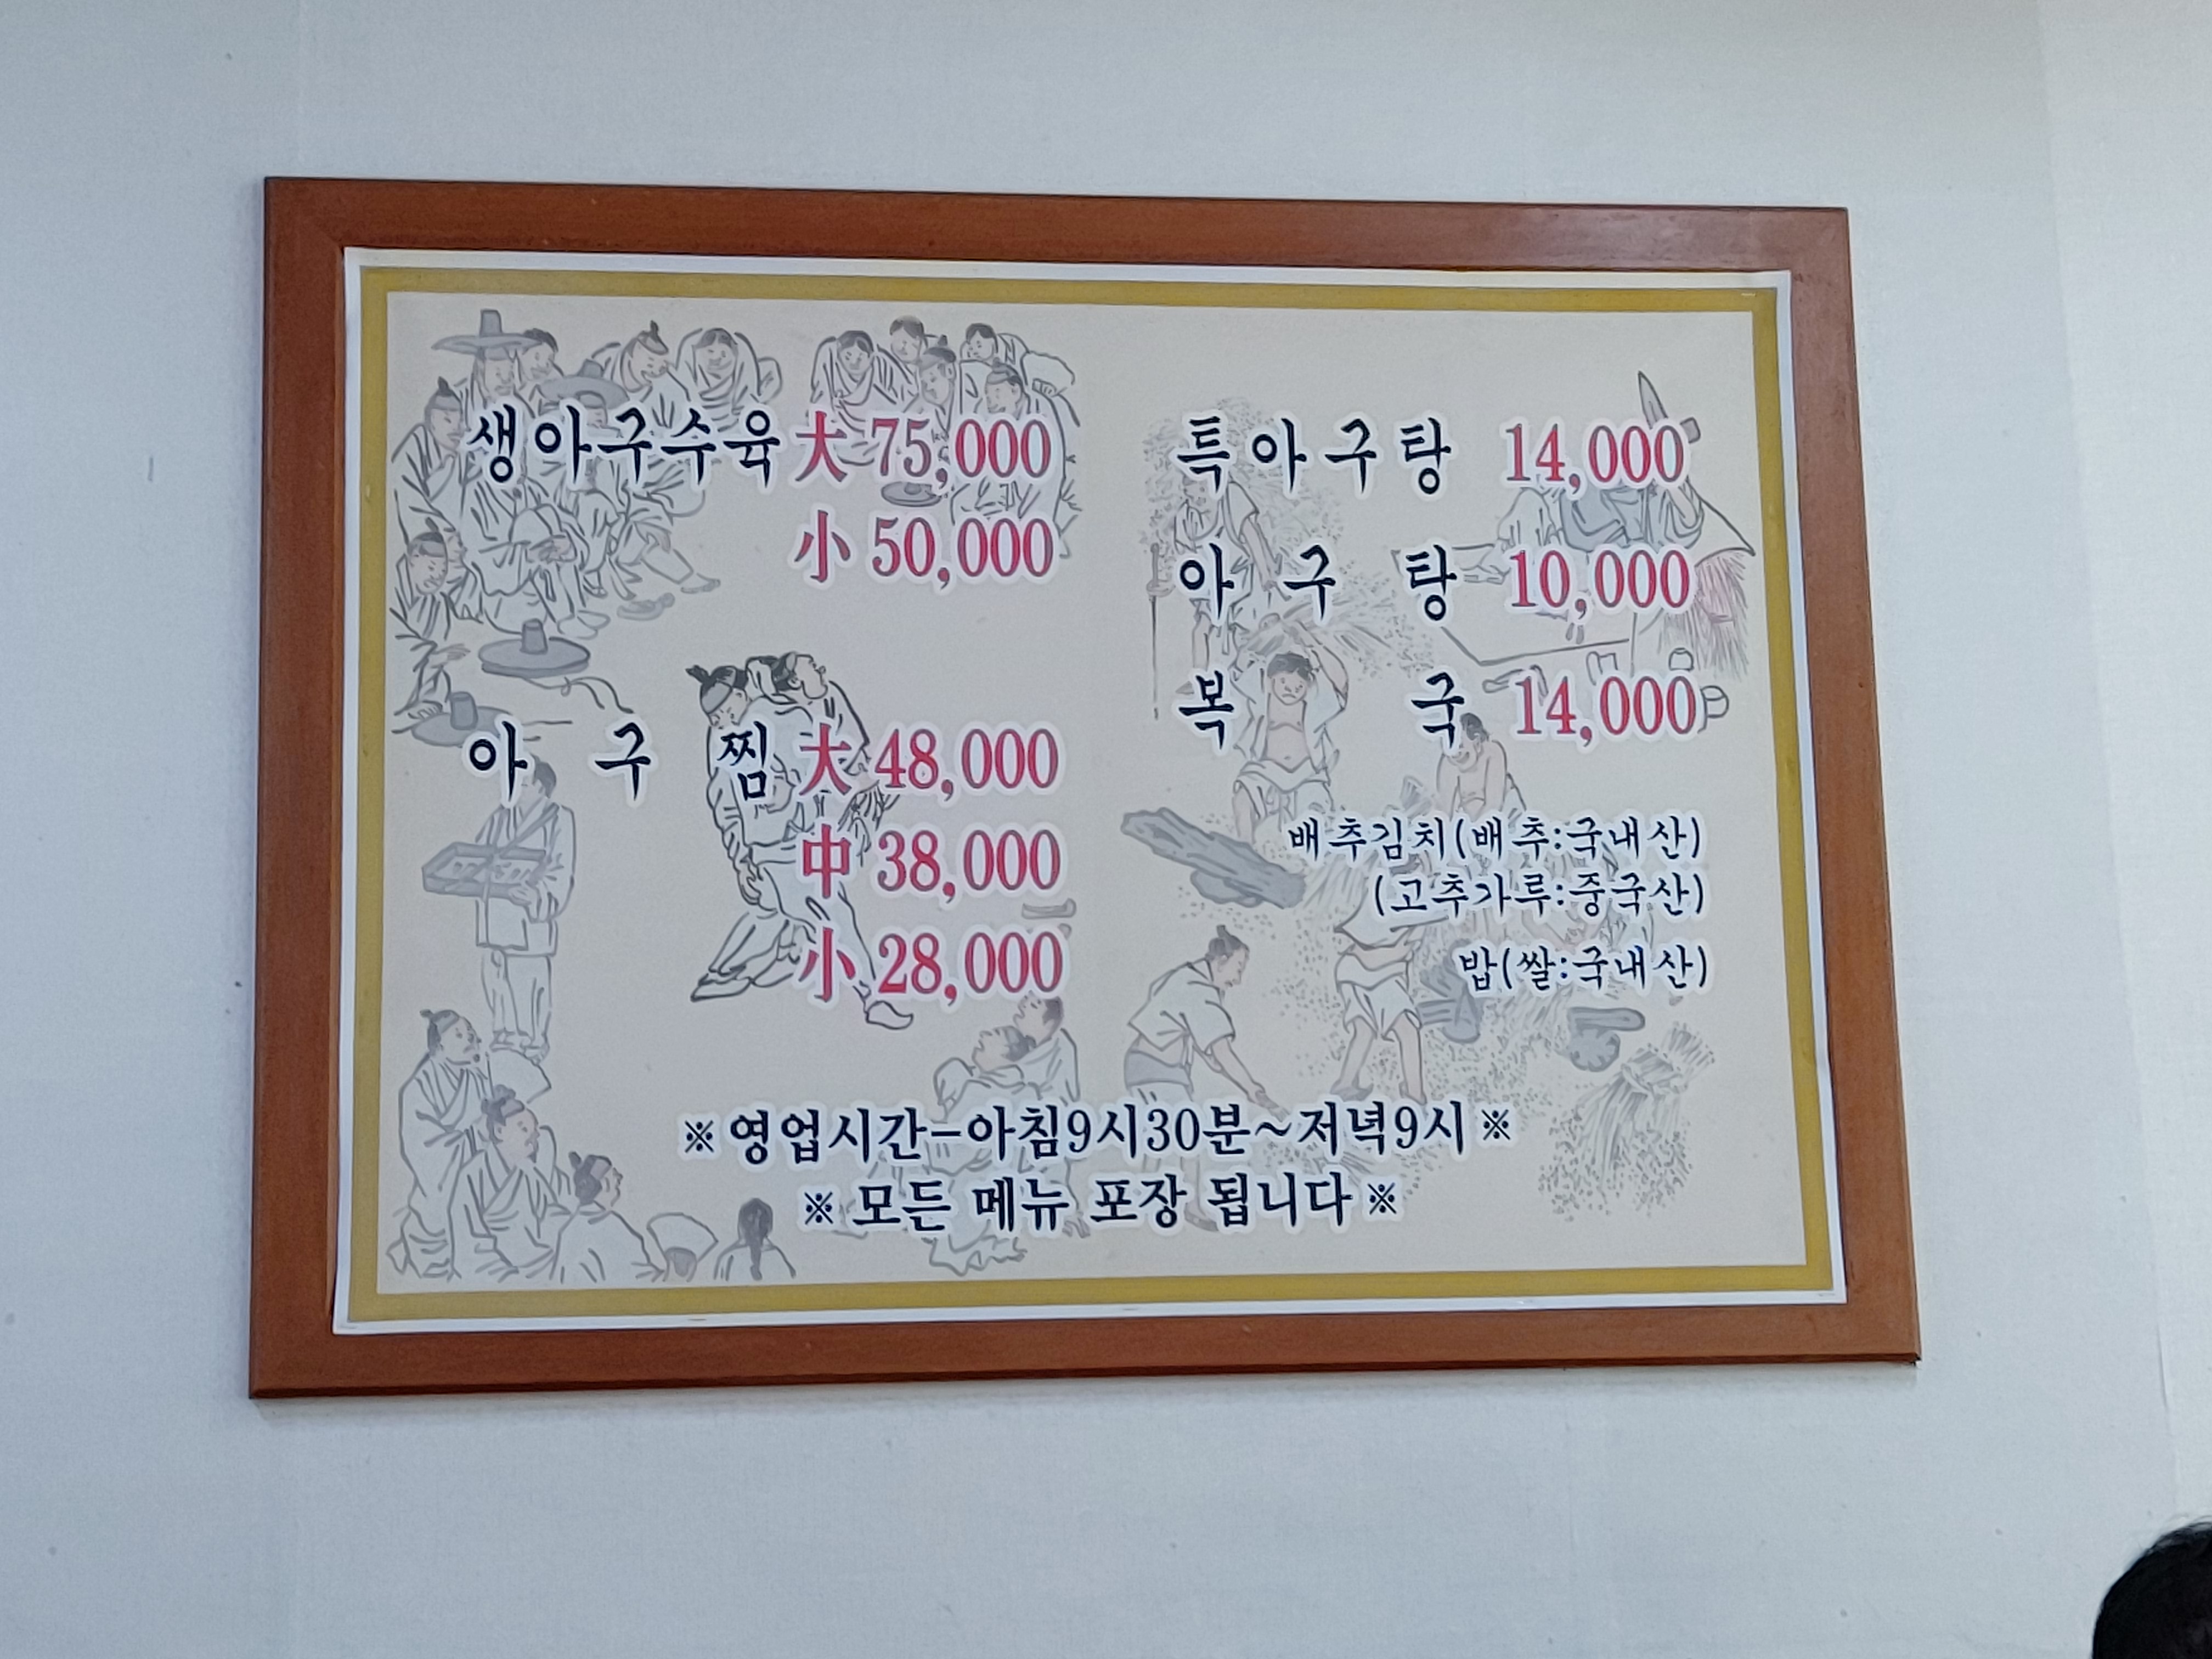 생아구수육 大 75,000
小 50,000
아 구 찜 大 48,000
中 38,000
小 28,000
특아구탕 14,000
아 구 탕 10,000
복 국 14,000
배추김치(배추:국내산)
(고추가루:중국산)
밥(쌀:국내산)
※영업시간-아침9시30분~저녁9시※
※모든 메뉴 포장 됩니다※